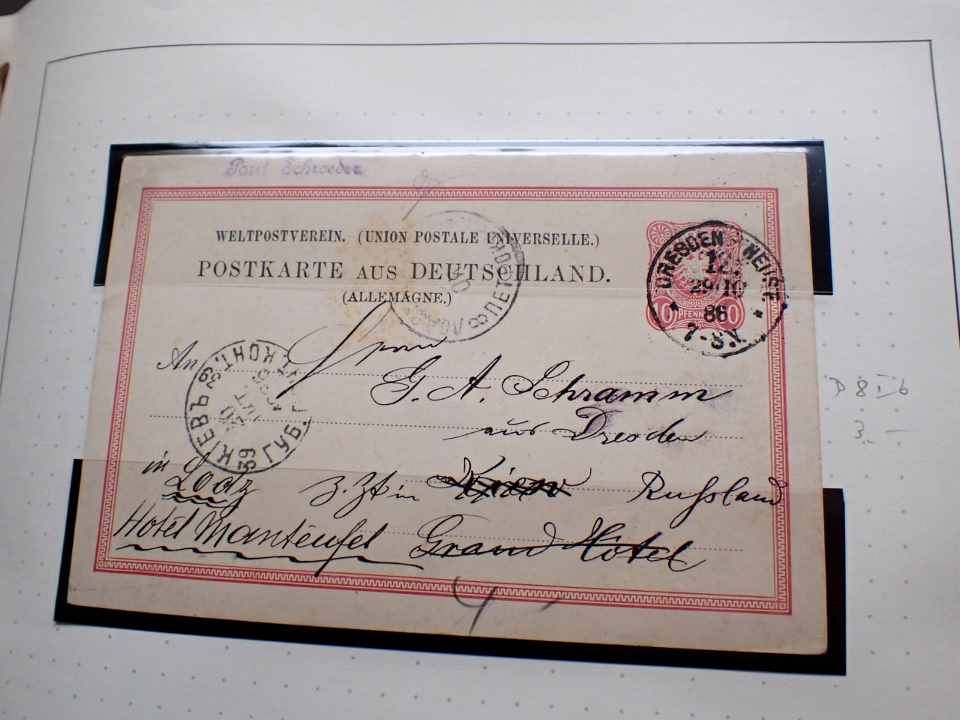 Paul Schroeder
WELTPOSTVEREIN. (UNION POSTALE UNIVERSELLE.)
POSTKARTE AUS DEUTSCHLAND.
(ALLEMAGNE.)
DRESDEN NEUST.
12.
29 10
86
7-8V.
10 PFENNIG 10
КІЕВЪ 39
ГУБ.
КОНТ.
39
Herrn
An G. A. Schramm
aus Dresden
in Lodz z. Zt in Kiew Russland
Hotel Manteufel Grand Hôtel
D 8 I b
3.-